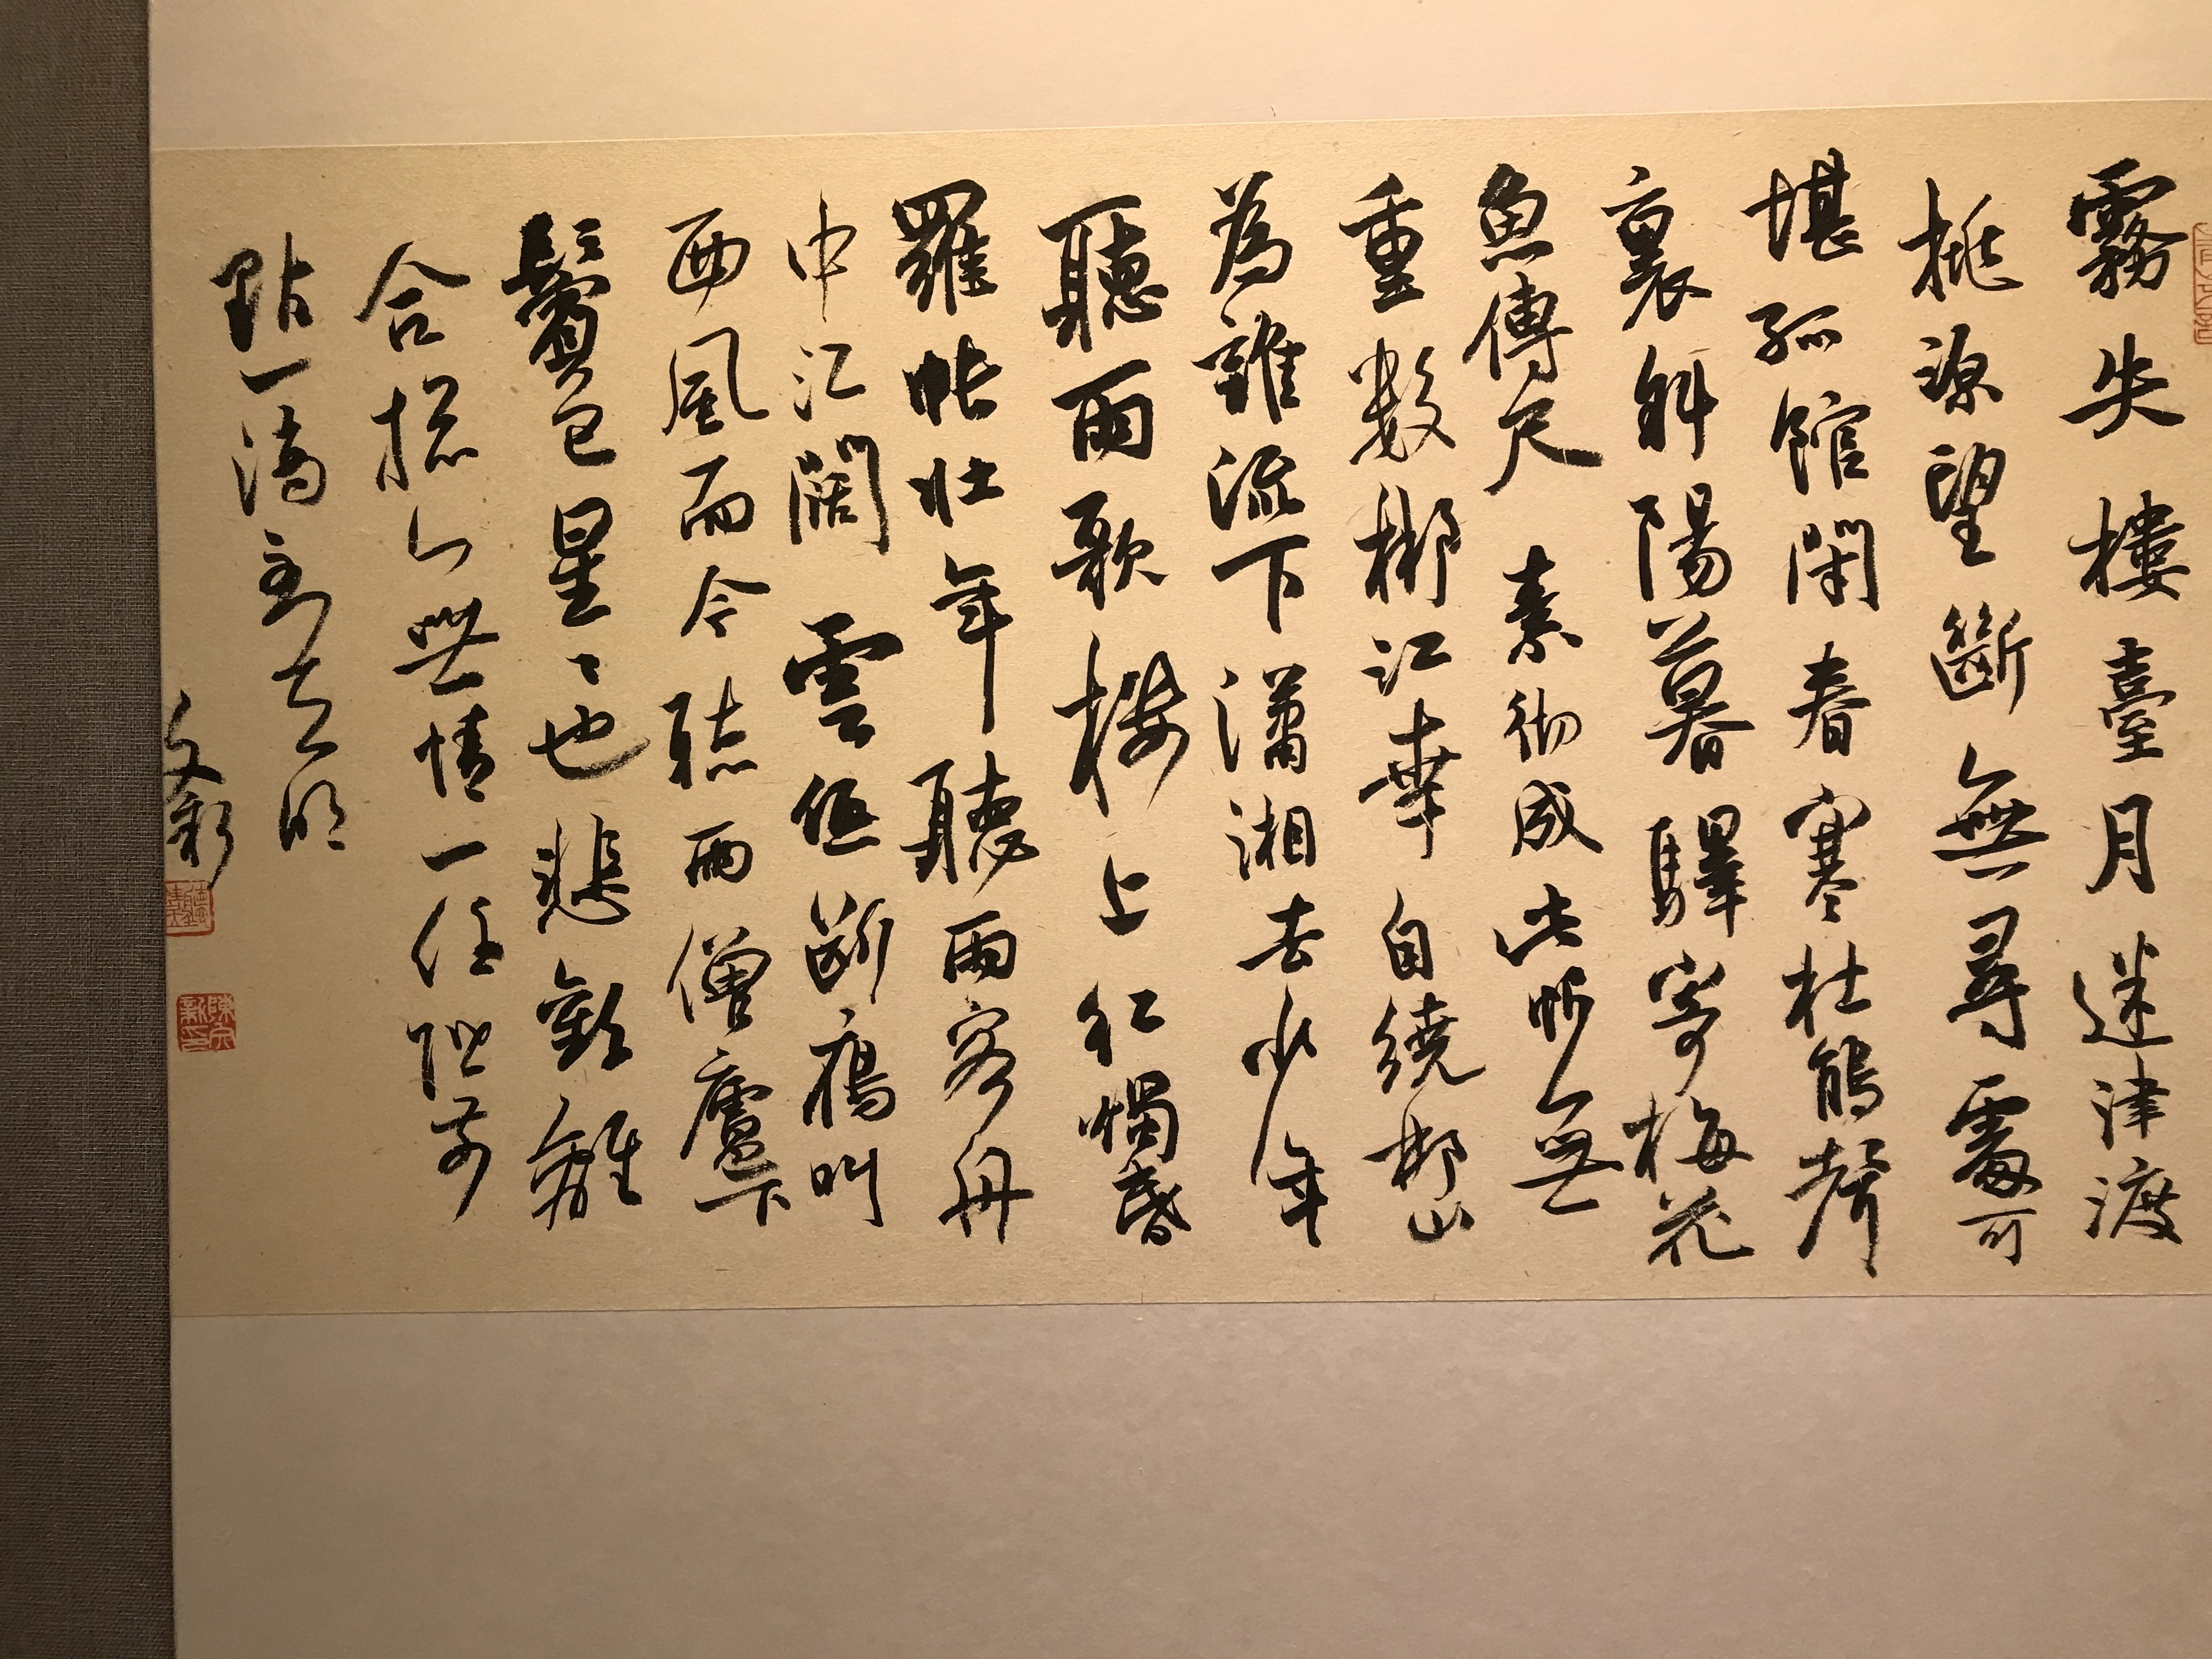 霧失樓臺月迷津渡
桃源望斷無尋處可
堪孤館閑春寒杜鵑聲
裏斜陽暮驛寄梅花
魚傳尺素彻成此恨無
重數郴江幸自繞郴山
為誰流下瀟湘去少年
聽雨歌樓上紅燭昏
羅帐壯年聽雨客舟
中江闊雲低断鴈叫
西風而今聼雨僧廬下
鬢已星〻也悲歡離
合揔〻無情一任階前
點一滴到天明
文新
陳文新印